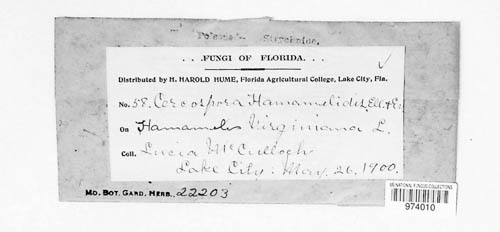 Poisoned - Strychnine.
. . FUNGI OF FLORIDA. . .
Distributed by H. HAROLD HUME, Florida Agricultural College, Lake City, Fla.
No. 58. Cercospora Hamamelidis, Ell. & Ev.
On Hamamelis Virginiana L.
Coll. Lucia McCulloch
Lake City: May, 26, 1900.
MO. BOT. GARD. HERB. 22203
US NATIONAL FUNGUS COLLECTIONS
974010